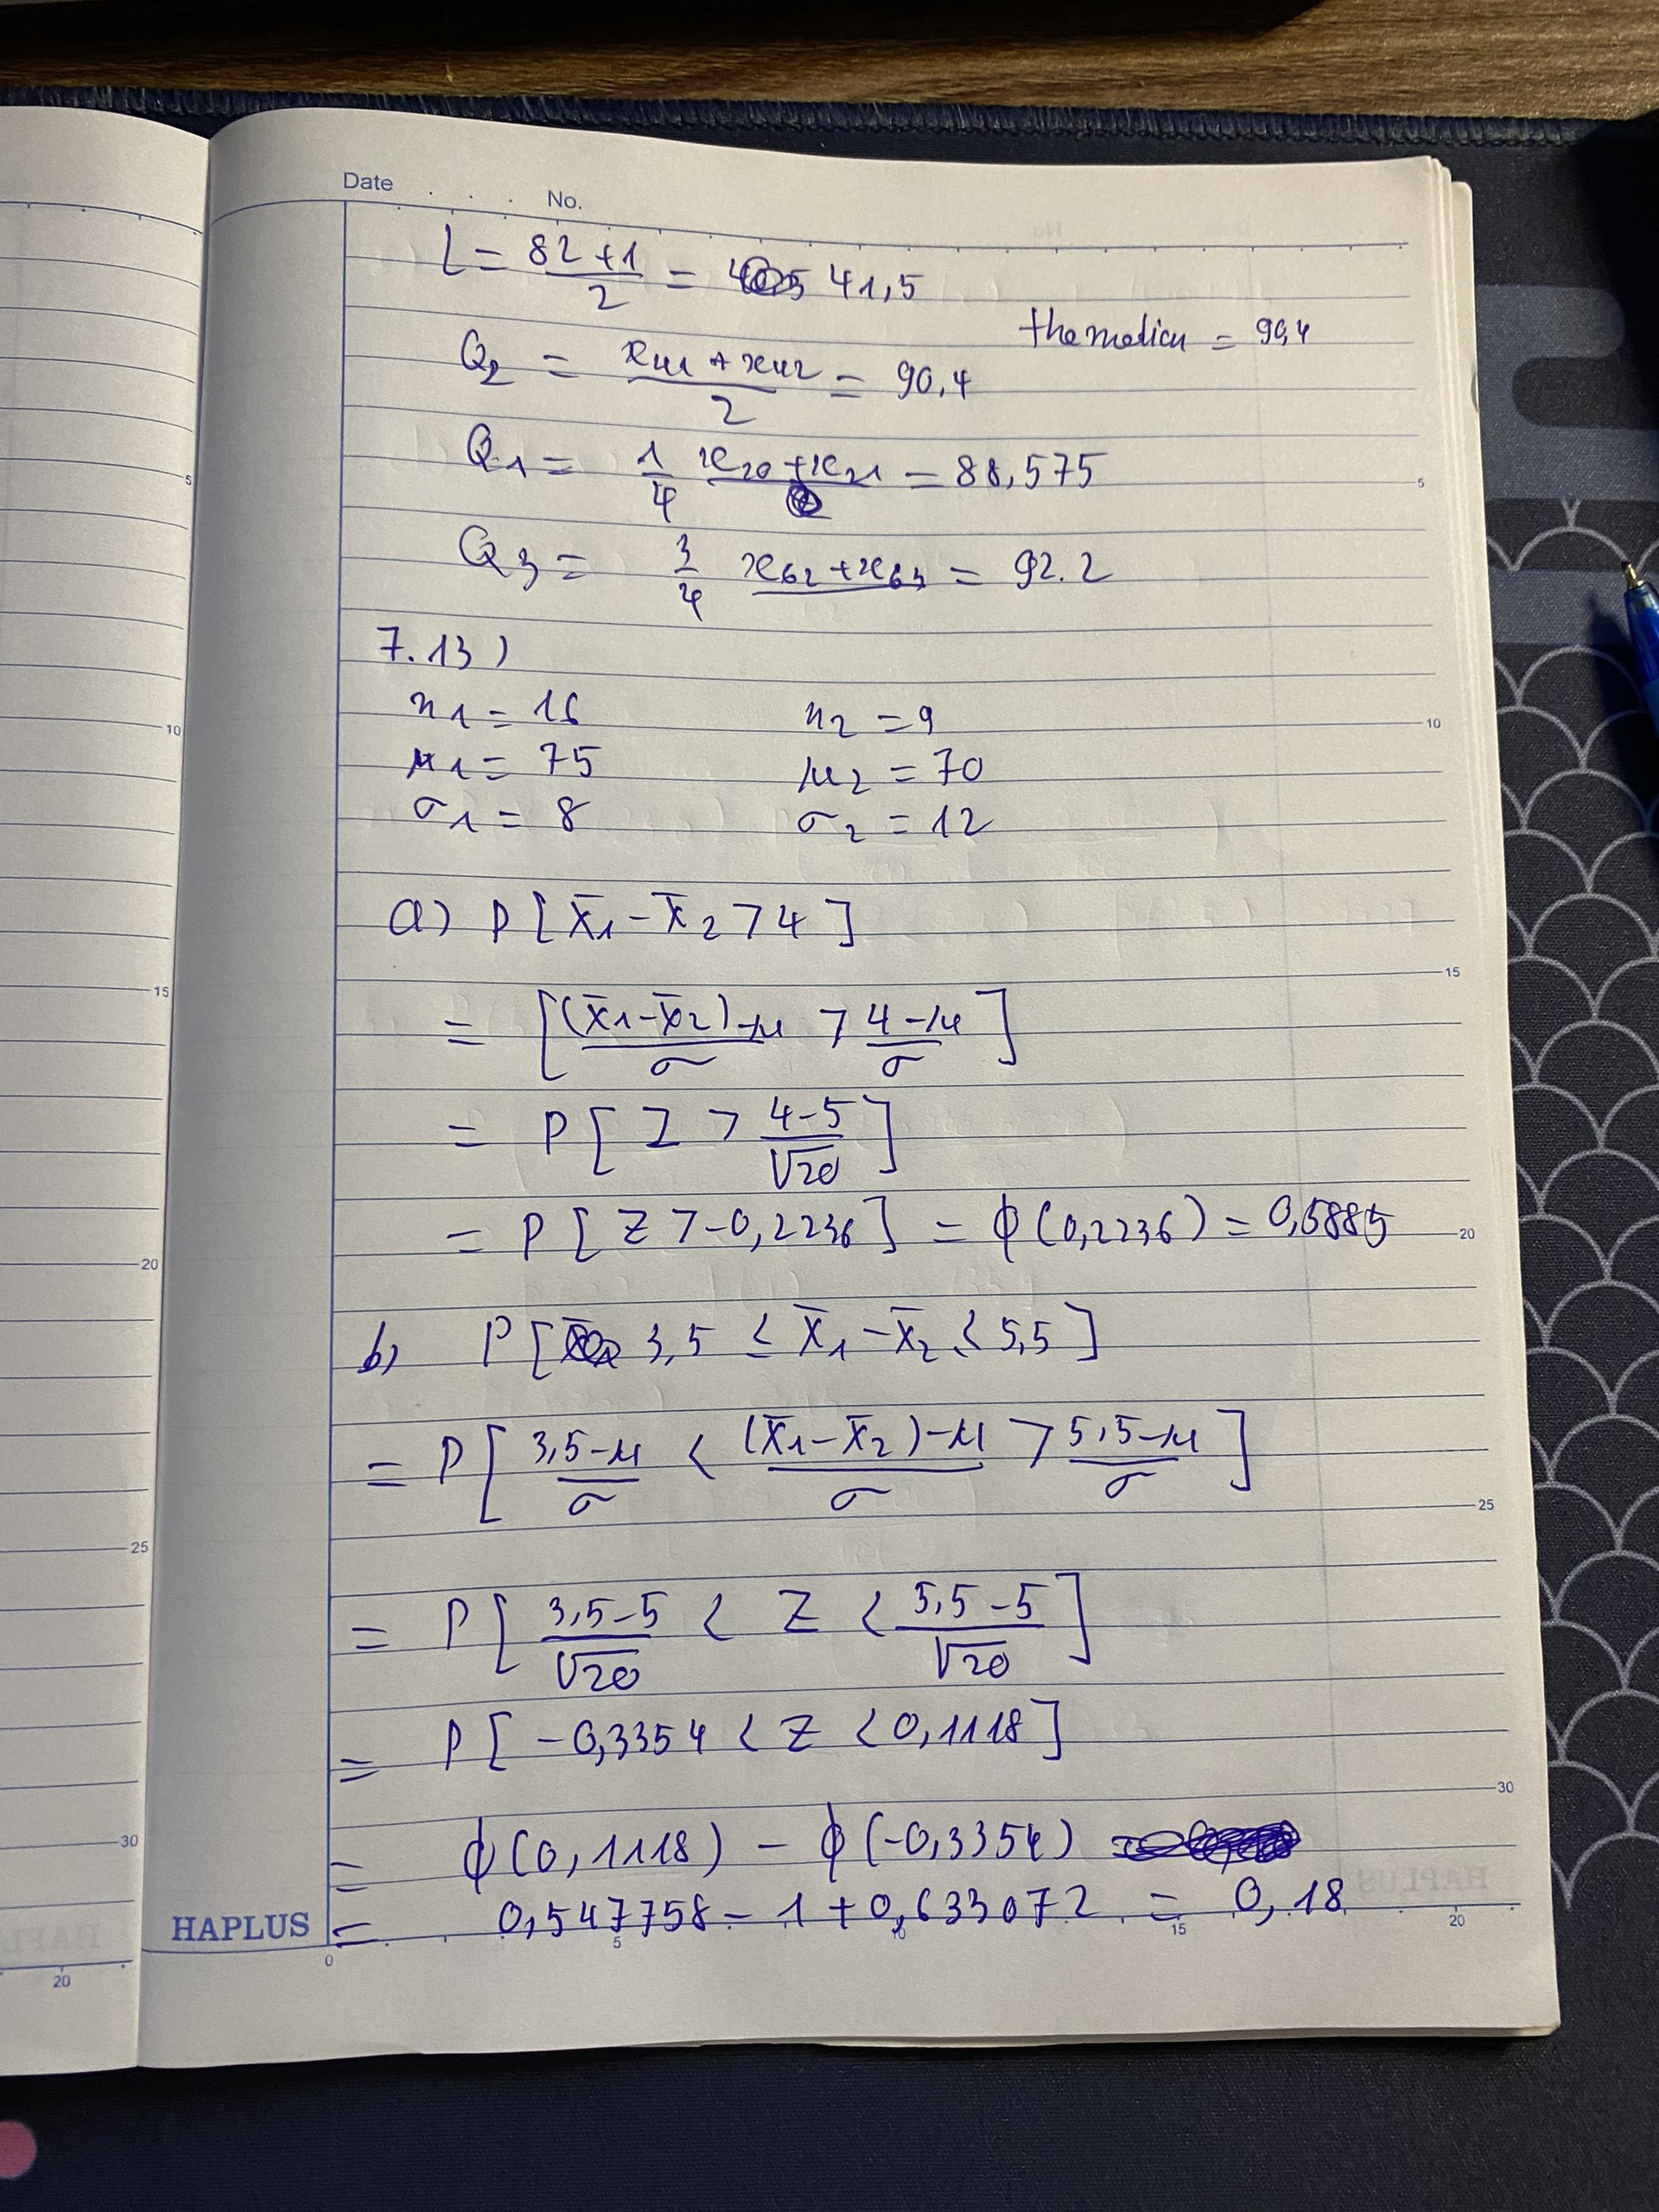 Date . . . No.
L = 82+1/2 = 41,5
the median = 90,4
Q2 = x41 + x42/2 = 90,4
Q1 = 1/4 x20 + x21 = 88,575
Q3 = 3/4 x62 + x63 = 92.2
7.13)
n1 = 16 n2 = 9
μ1 = 75 μ2 = 70
σ1 = 8 σ2 = 12
a) P[X̄1 - X̄2 > 4]
= [(X̄1 - X̄2) - μ/σ > 4 - μ/σ]
= P[Z > 4-5/√20]
= P[Z > -0,2236] = ϕ(0,2236) = 0,5885
b) P[3,5 ≤ X̄1 - X̄2 ≤ 5,5]
= P[3,5-μ/σ < (X̄1 - X̄2) - μ/σ > 5,5-μ/σ]
= P[3,5-5/√20 < Z < 5,5-5/√20]
= P[-0,3354 < Z < 0,1118]
= ϕ(0,1118) - ϕ(-0,3354)
= 0,547758 - 1 + 0,633072 = 0,18
HAPLUS